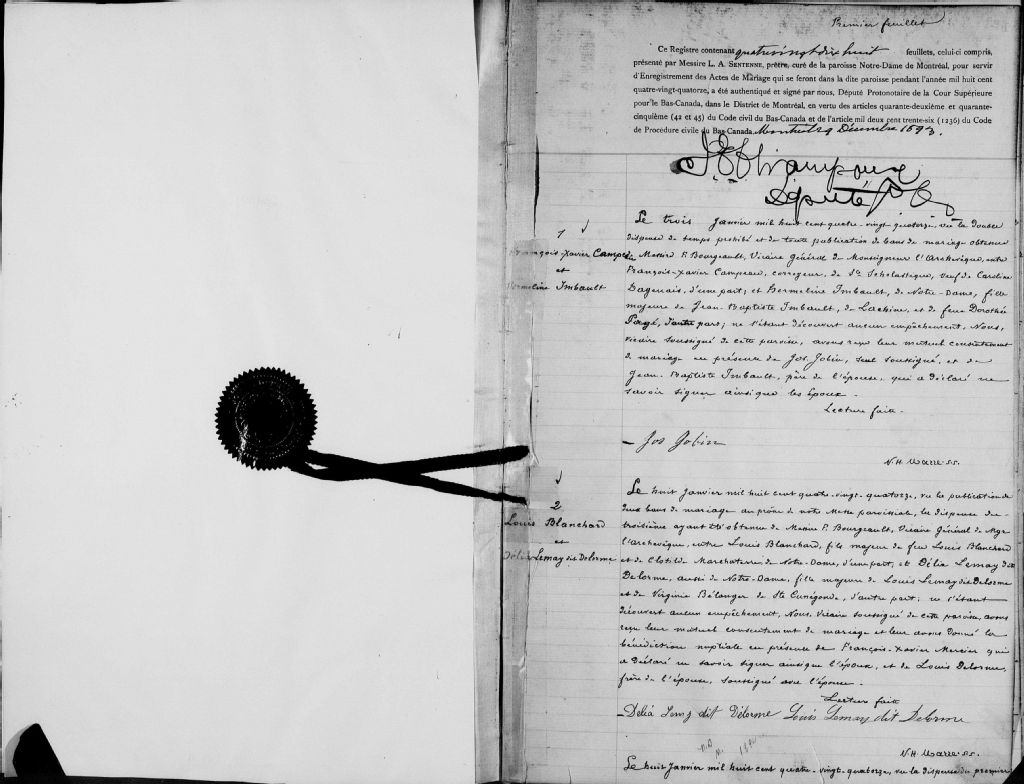 Premier feuillet
Ce Registre contenant quatrevingt dix huit feuillets, celui-ci compris,
présenté par Messire L. A. Sentenne, prêtre, curé de la paroisse Notre-Dame de Montréal, pour servir
d'Enregistrement des Actes de Mariage qui se feront dans la dite paroisse pendant l'année mil huit cent
quatre-vingt-quatorze, a été authentiqué et signé par nous, Député Protonotaire de la Cour Supérieure
pour le Bas-Canada, dans le District de Montréal, en vertu des articles quarante-deuxième et quarante-
cinquième (42 et 45) du Code civil du Bas-Canada et de l'article mil deux cent trente-six (1236) du Code
de Procédure civile du Bas-Canada. Montreal 29 Décembre 1893.
Député P.
1
François-Xavier Campeau
et
Hermeline Imbault
Le trois Janvier mil huit cent quatre-vingt-quatorze, vu la double
dispense de temps prohibé et de toute publication de bans de mariage obtenue
de Messire F. Bourgeault, Vicaire Général de Monseigneur l'Archevêque, entre
François-Xavier Campeau, corroyeur, de Ste Scholastique, veuf de Caroline
Dagenais, d'une part; et Hermeline Imbault, de Notre-Dame, fille
majeure de Jean-Baptiste Imbault, de Lachine, et de feue Dorothée
Pagé, d'autre part; ne s'étant découvert aucun empêchement, Nous,
vicaire soussigné de cette paroisse, avons reçu leur mutuel consentement
de mariage en présence de Jos. Jobin, seul soussigné, et de
Jean-Baptiste Imbault, père de l'épouse, qui a déclaré ne
savoir signer ainsi que les époux.
Lecture faite.
Jos Jobin
N. H. Marre p.s.
2
Louis Blanchard
et
Délia Lemay dit Delorme
Le huit Janvier mil huit cent quatre-vingt-quatorze, vu la publication de
deux bans de mariage au prône de notre Messe paroissiale, la dispense du
troisième ayant été obtenue de Messire F. Bourgeault, Vicaire Général de Mgr
l'Archevêque, entre Louis Blanchard, fils majeur de feu Louis Blanchard
et de Clotilde Marchaterre de Notre-Dame, d'une part, et Délia Lemay dit
Delorme, aussi de Notre-Dame, fille majeure de Louis Lemay dit Delorme
et de Virginie Bélanger de Ste Cunégonde, d'autre part; ne s'étant
découvert aucun empêchement, Nous, Vicaire soussigné de cette paroisse, avons
reçu leur mutuel consentement de mariage et leur avons donné la
bénédiction nuptiale en présence de François-Xavier Mercier qui
a déclaré ne savoir signer ainsi que l'époux, et de Louis Delorme,
frère de l'épouse, soussigné avec l'épouse.
Lecture faite
Délia Lemay dit Délorme Louis Lemay dit Delorme
N. H. Marre p.s.
Le huit Janvier mil huit cent quatre-vingt-quatorze, vu la dispense du premier